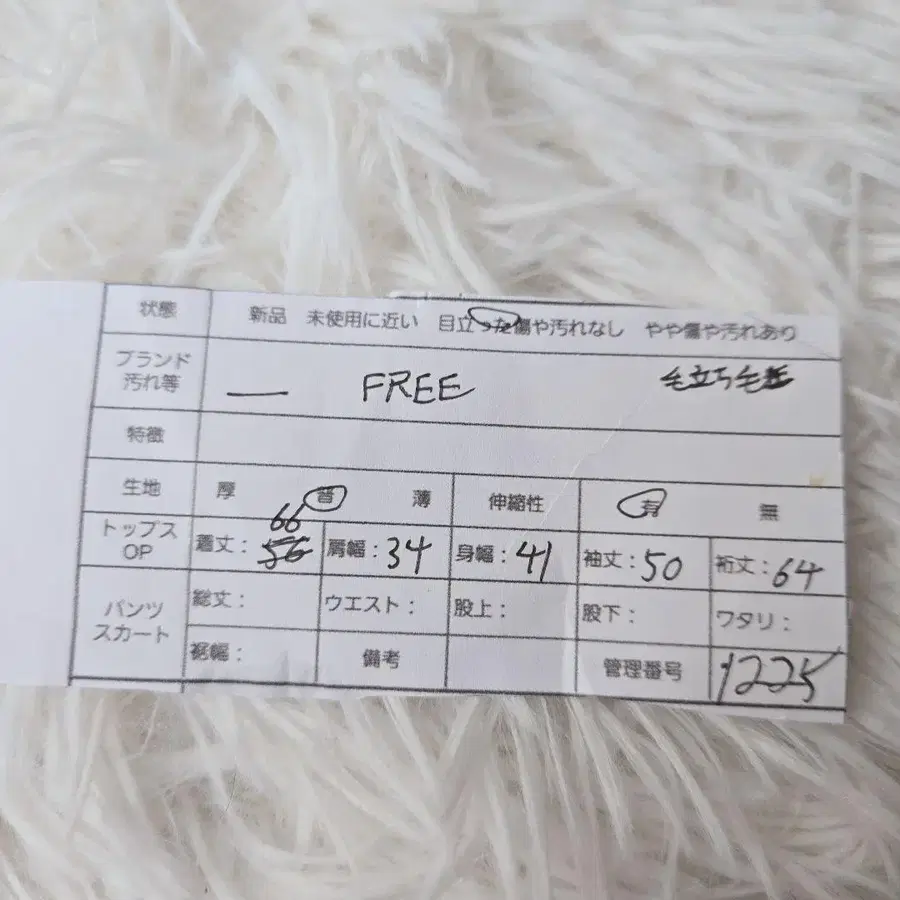 状態 新品 未使用に近い 目立った傷や汚れなし やや傷や汚れあり
ブランド 汚れ等 — FREE 毛立ち毛玉
特徴
生地 厚 普 薄 伸縮性 有 無
トップス OP 着丈: 56 66 肩幅: 34 身幅: 41 袖丈: 50 裄丈: 64
パンツ スカート 総丈: ウエスト: 股上: 股下: ワタリ:
裾幅: 備考 管理番号 1225